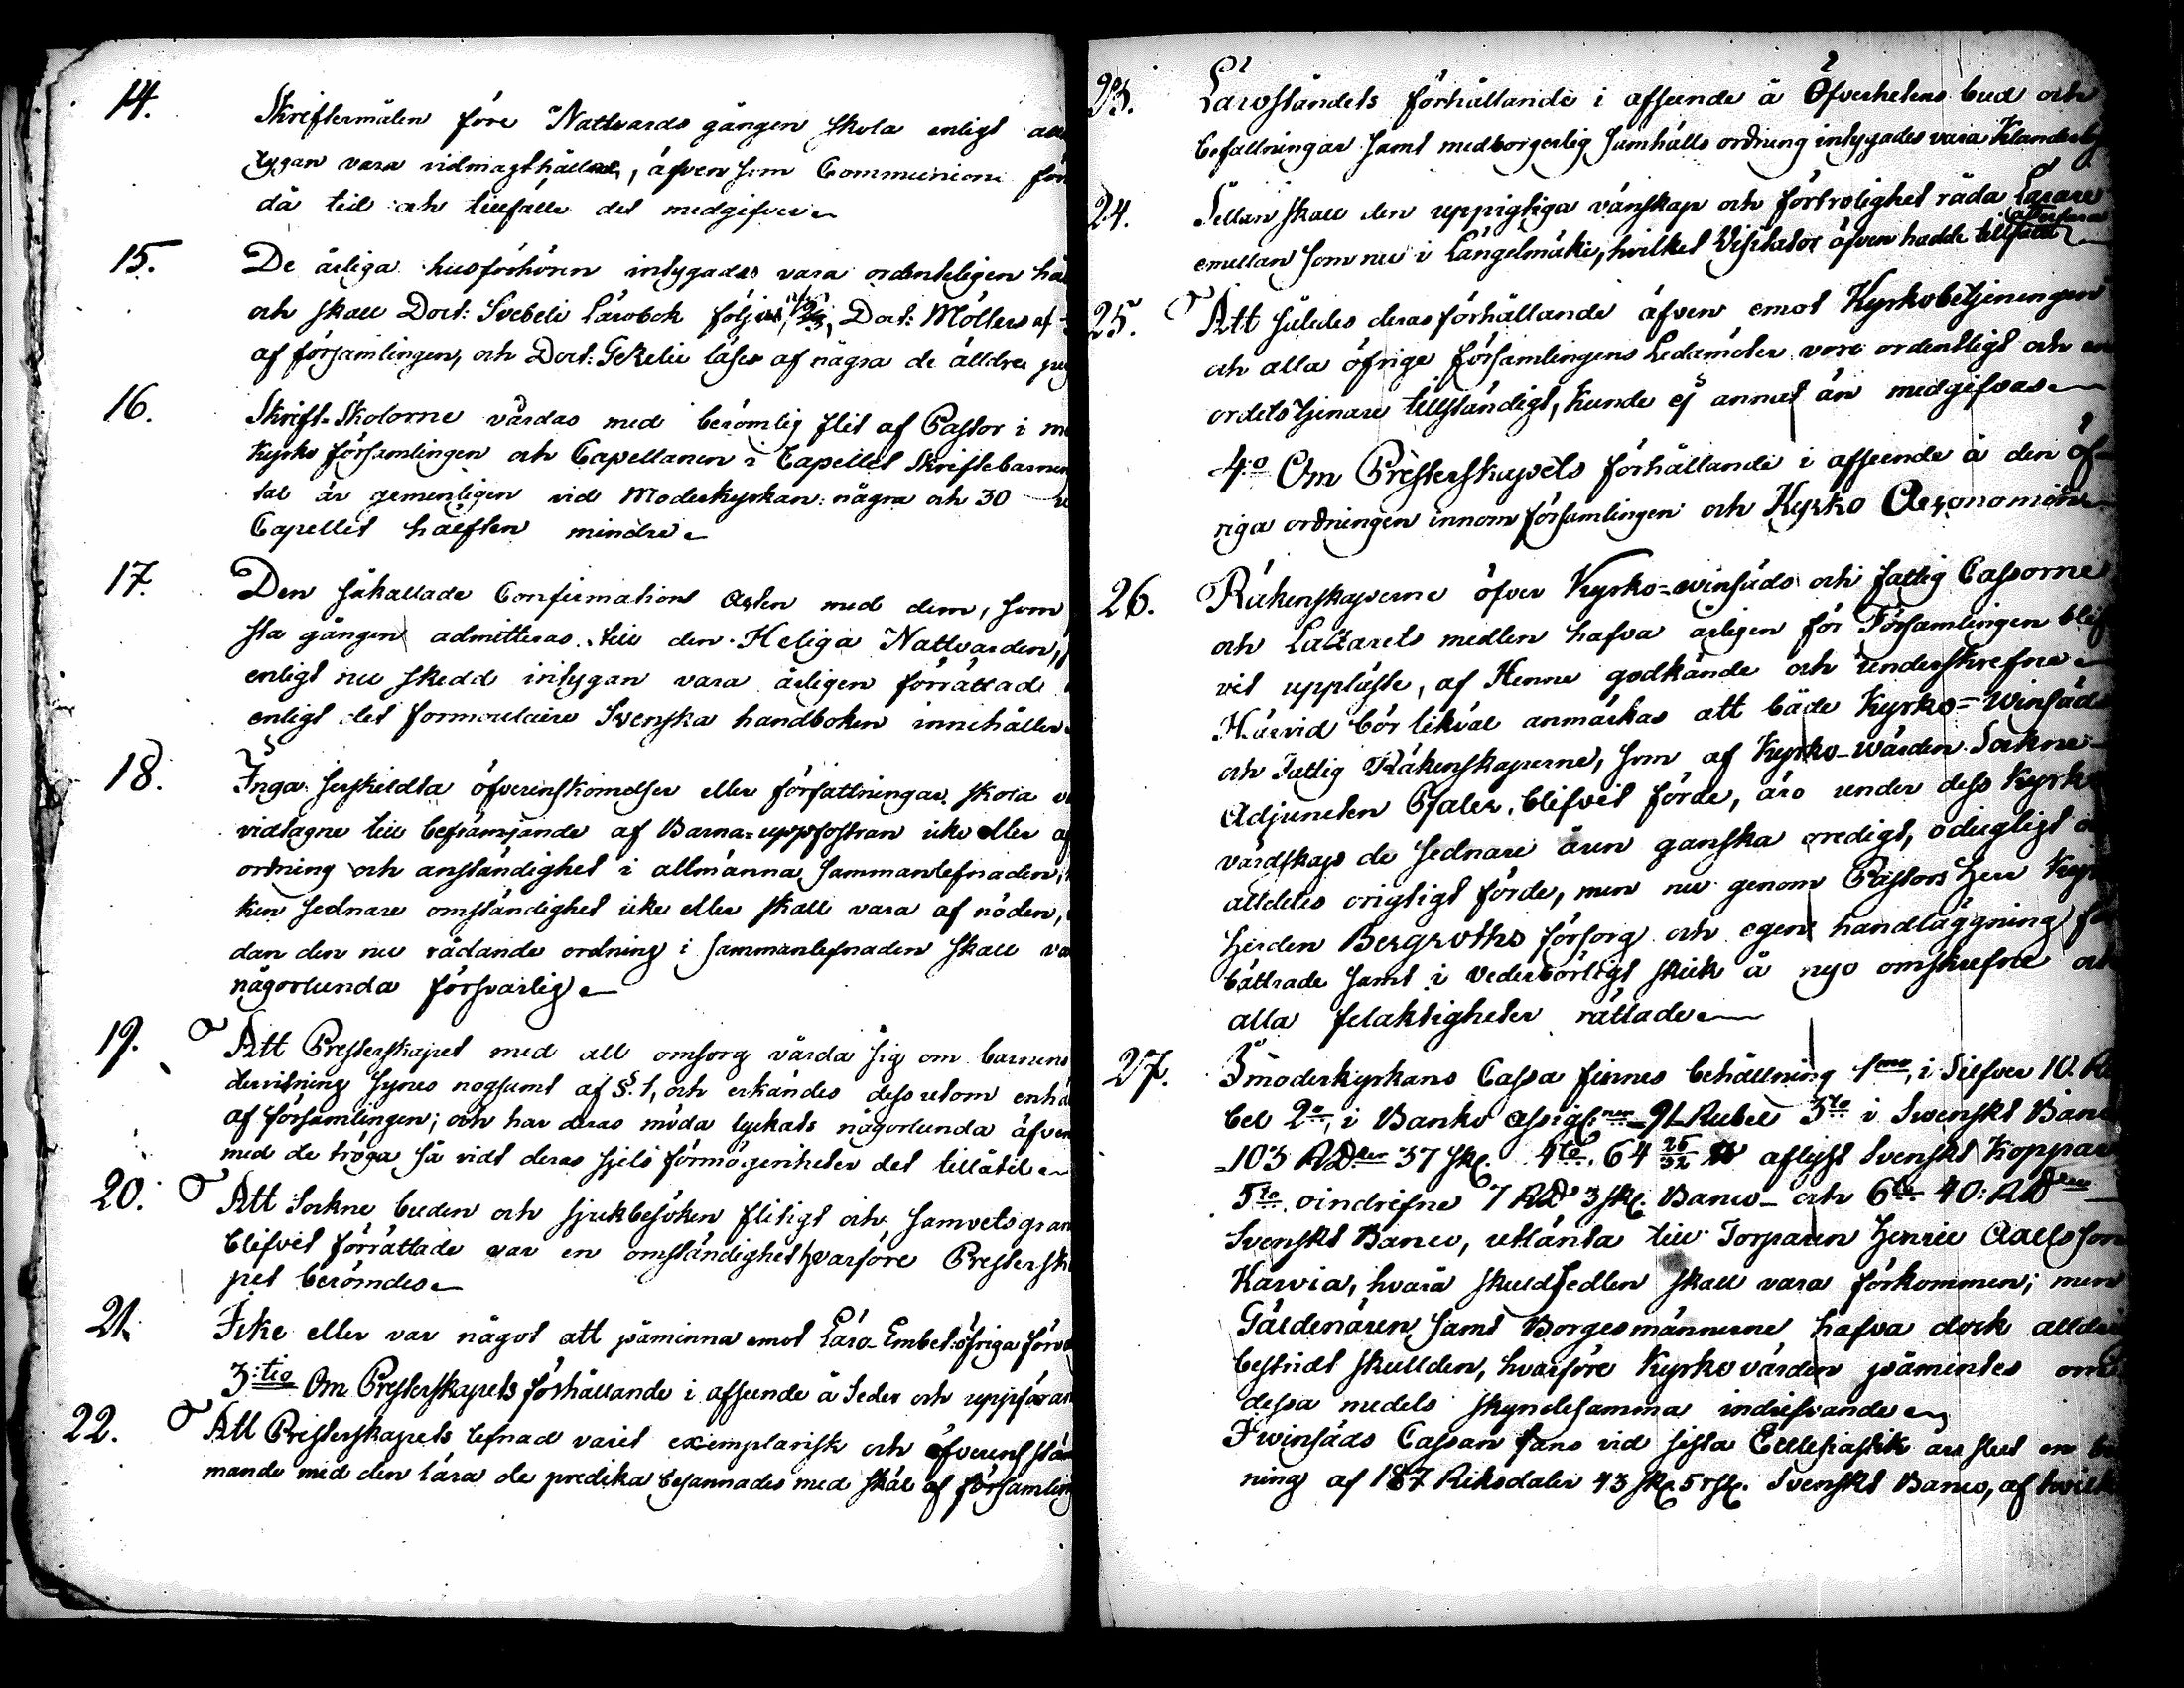 14.
Skriftermålen före Nattvards gången skola enligt
tygan vara vidmagthållne, äfven som Communion
då tid och tillfälle det medgifver
15.
De årliga husförhören intygades vara ordenteligen
och skall Doct: Svebeli Lärobok följas, Doct: Möllers af
af församlingen, och Doct: Gezelii läses af några de älldre
16.
Skrift-Skolorne vårdas med berömlig flit af Pastor i
Kyrko församlingen och Capellanen i Capellet Skriftebarnen
tal är gemenligen vid Moderkyrkan några och 30
Capellet hälften mindre
17.
Den såkallade Confirmations Acten med dem, som
sta gången admitteras till den Heliga Nattvarden,
enligt nu skedd intygan vara årligen förrättad
enligt det formoulaire Svenska handboken innehåller
18.
Inga serskildta öfverenskomelser eller författningar skola
vidtagne till befrämjande af Barna-uppfostran icke eller
ordning och anständighet i allmänna sammanlefnaden,
ken sednare omständighet icke eller skall vara af nöden,
dan den nu rådande ordning i sammanlefnaden skall
någorlunda försvarlig
19.
Att Presterskapet med all omsorg vårda sig om barnens
dervisning synes nogsamt af §. 1, och erkändes dessutom
af församlingen; och har deras möda lyckats någorlunda äfven
med de tröga så vidt deras själs förmögenheter det tillåtit
20.
Att Sockne buden och sjukbesöken flitigt och samvetsgran
blifvit förrättade var en omständighet hvarföre Prestersk
pet berömdes
21.
Icke eller var något att påminna emot Läro-Embet: öfriga
3:tio Om Presterskapets förhållande i afseende å Seder och uppföran
22.
Att Presterskapets lefnad varit exemplarisk och öfverens stäm
mande med den lära de predika besannades med skäl af församling
23.
Lärostandets förhållande i afseende å Öfverhetens bud och
befallningar samt medborgerlig samhälls ordning intygades vara
24.
Sällan skall den uppigtiga vänskap och förtrolighet råda Lärare
emellan som nu i Längelmäki, hvilket Visitator äfven hadde tillfälle
25.
Att således deras förhållande äfven emot Kyrkobetjeningen
och alla öfrige församlingens Ledamöter vore ordentligt och
ordets tjenare tillständigt, kunde ej annat än medgifvas
4:o Om Presterskapets förhållande i afseende å den öf-
riga ordningen innom församlingen och Kyrko Oeconomien
26.
Räkenskaperne öfver Kyrko-winsäds och fattig Cassorne
och Lazarets medlen hafva årligen för Församlingen blif
vit uppläste, af Henne godkände och underskrefne
Härvid bör likväl anmärkas att både Kyrko-Winsäds
och Fattig Räkenskaperne, som af Kyrko-wärden Sockne-
Adjuncten Pfaler, blifvit förde, äro under dess Kyrko
värdskap de sednare åren ganska oredigt, odugligt
alldeles origtigt förde, men nu genom Pastors Herr Kyrko
Herden Bergroths försorg och egen handläggning
bättrade samt i vederbörligt skick å nyo omskrefne och
alla felaktigheter rättade
27.
I moderkyrkans Cassa finnes behållning 1mo, i Silfver 10.
bel 2o, i Banko assig:ner 91 Rubel 3to i Swenskt Banco
103 RDler 37 sk. 4to. 64 25/32 aflyst Svenskt Koppar
5to. oindrifne 7 RD 3 sk. Banco- och 6to 40: RDler
Svenskt Banco, utlånta till Torparen Henric
Karvia, hvarå skuldsedlen skall vara förkommen; men
Gäldenären samt Borgesmännerne hafva dock alldrig
bestridt skullden, hvarföre Kyrko värden påmintes om
dessa medels skyndesamma indrifvande
I winsäds Cassan fans vid sista Ecclesiastik års slut en
ning af 187 Riksdaler 43 sk. 5 rst. Svenskt Banco, af hvilk